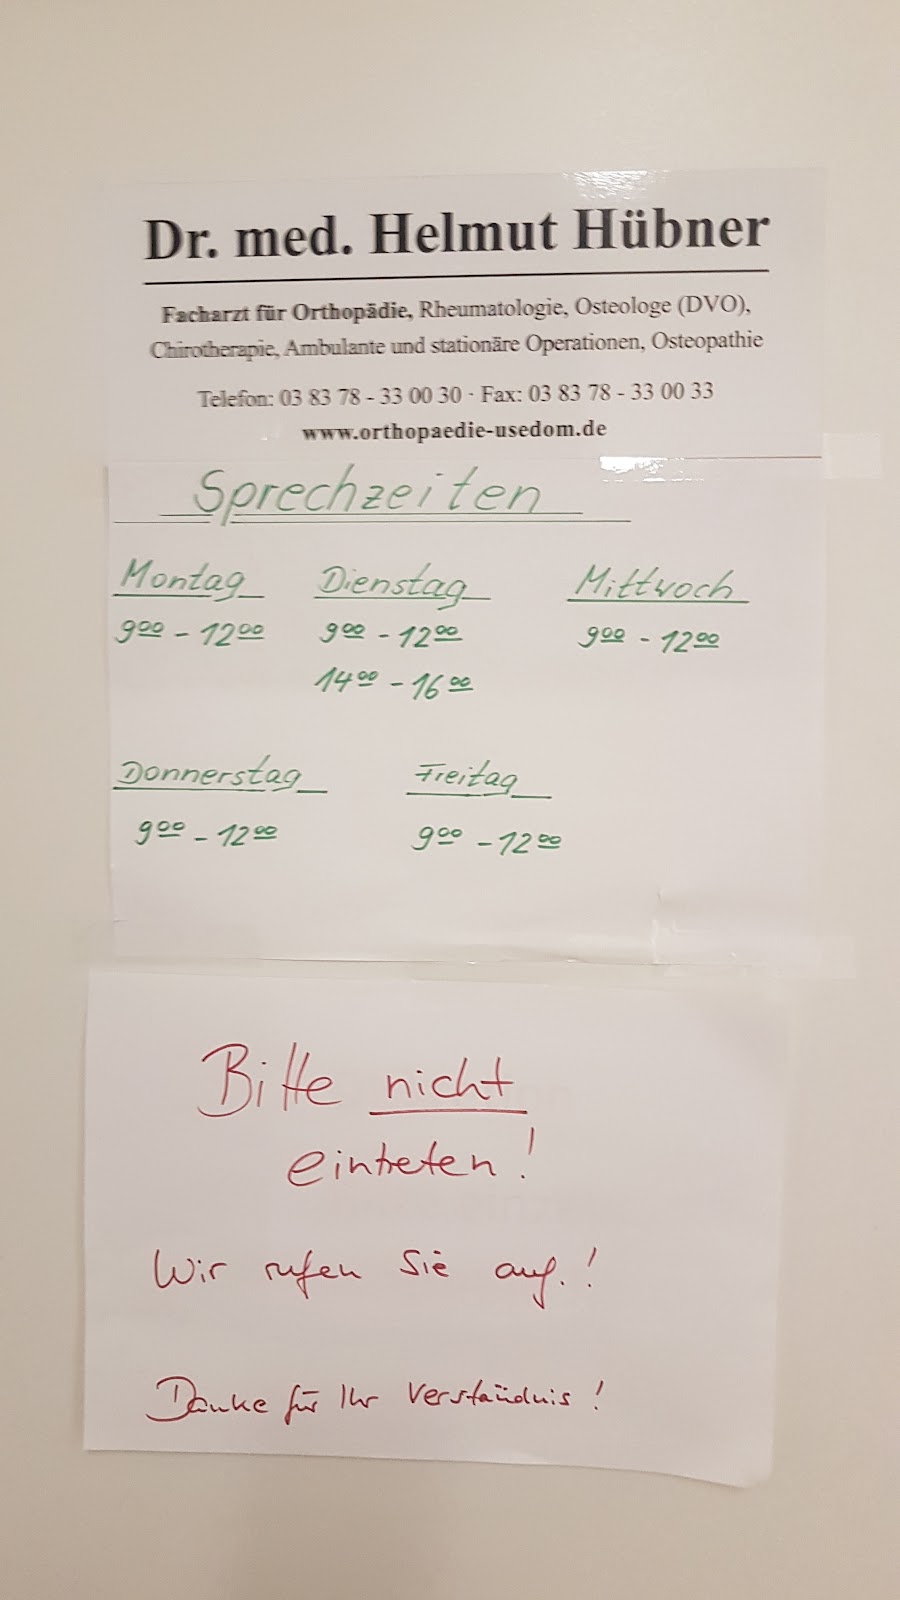 Dr. med. Helmut Hübner
Facharzt für Orthopädie, Rheumatologie, Osteologe (DVO),
Chirotherapie, Ambulante und stationäre Operationen, Osteopathie
Telefon: 03 83 78 - 33 00 30 · Fax: 03 83 78 - 33 00 33
www.orthopaedie-usedom.de
Sprechzeiten
Montag Dienstag Mittwoch
9⁰⁰ - 12⁰⁰ 9⁰⁰ - 12⁰⁰ 9⁰⁰ - 12⁰⁰
14⁰⁰ - 16⁰⁰
Donnerstag Freitag
9⁰⁰ - 12⁰⁰ 9⁰⁰ - 12⁰⁰
Bitte nicht
eintreten!
Wir rufen Sie auf.!
Danke für Ihr Verständnis!